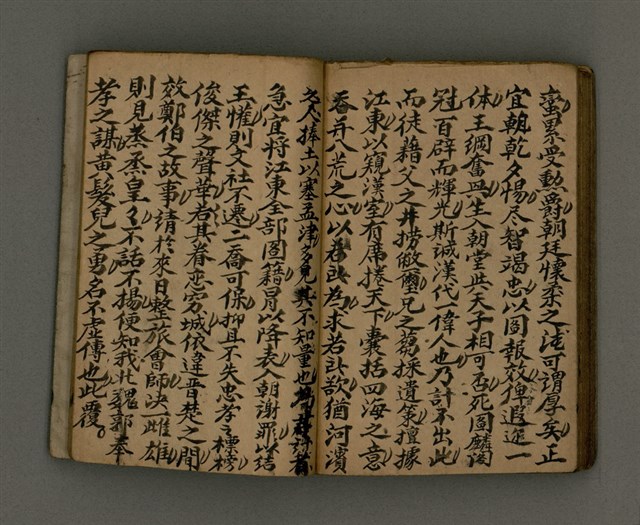 蛮累受勳爵朝廷懷柔之法可謂厚矣正
宜朝乾夕惕尽智竭忠以圖報效俾遐迩一
体王綱奮興生入朝堂與天子相可否死圖麟閣
冠百辟而輝光斯誠漢代一偉人也乃計不出此
而徒藉父之井撈璽兄之芻採遺策擅據
江東以窺漢室有席捲天下囊括四海之意
吞并八荒之心以若所為求若所欲猶河濱
之人捧土以塞孟津多見其不知量也
急宜将江東全部圖籍肩以降表入朝謝罪以结
王懽則文社不遷二喬可保抑且不失忠孝之標榜
俊傑之聲華若其眷恋穷城依違晋楚之間
效鄭伯之故事請於來日整旅會師决一雌雄
則見蒸蒸皇々不話不揚便知我北魏郭奉
孝之謀黄髮兒之勇名不虚傳也此覆。